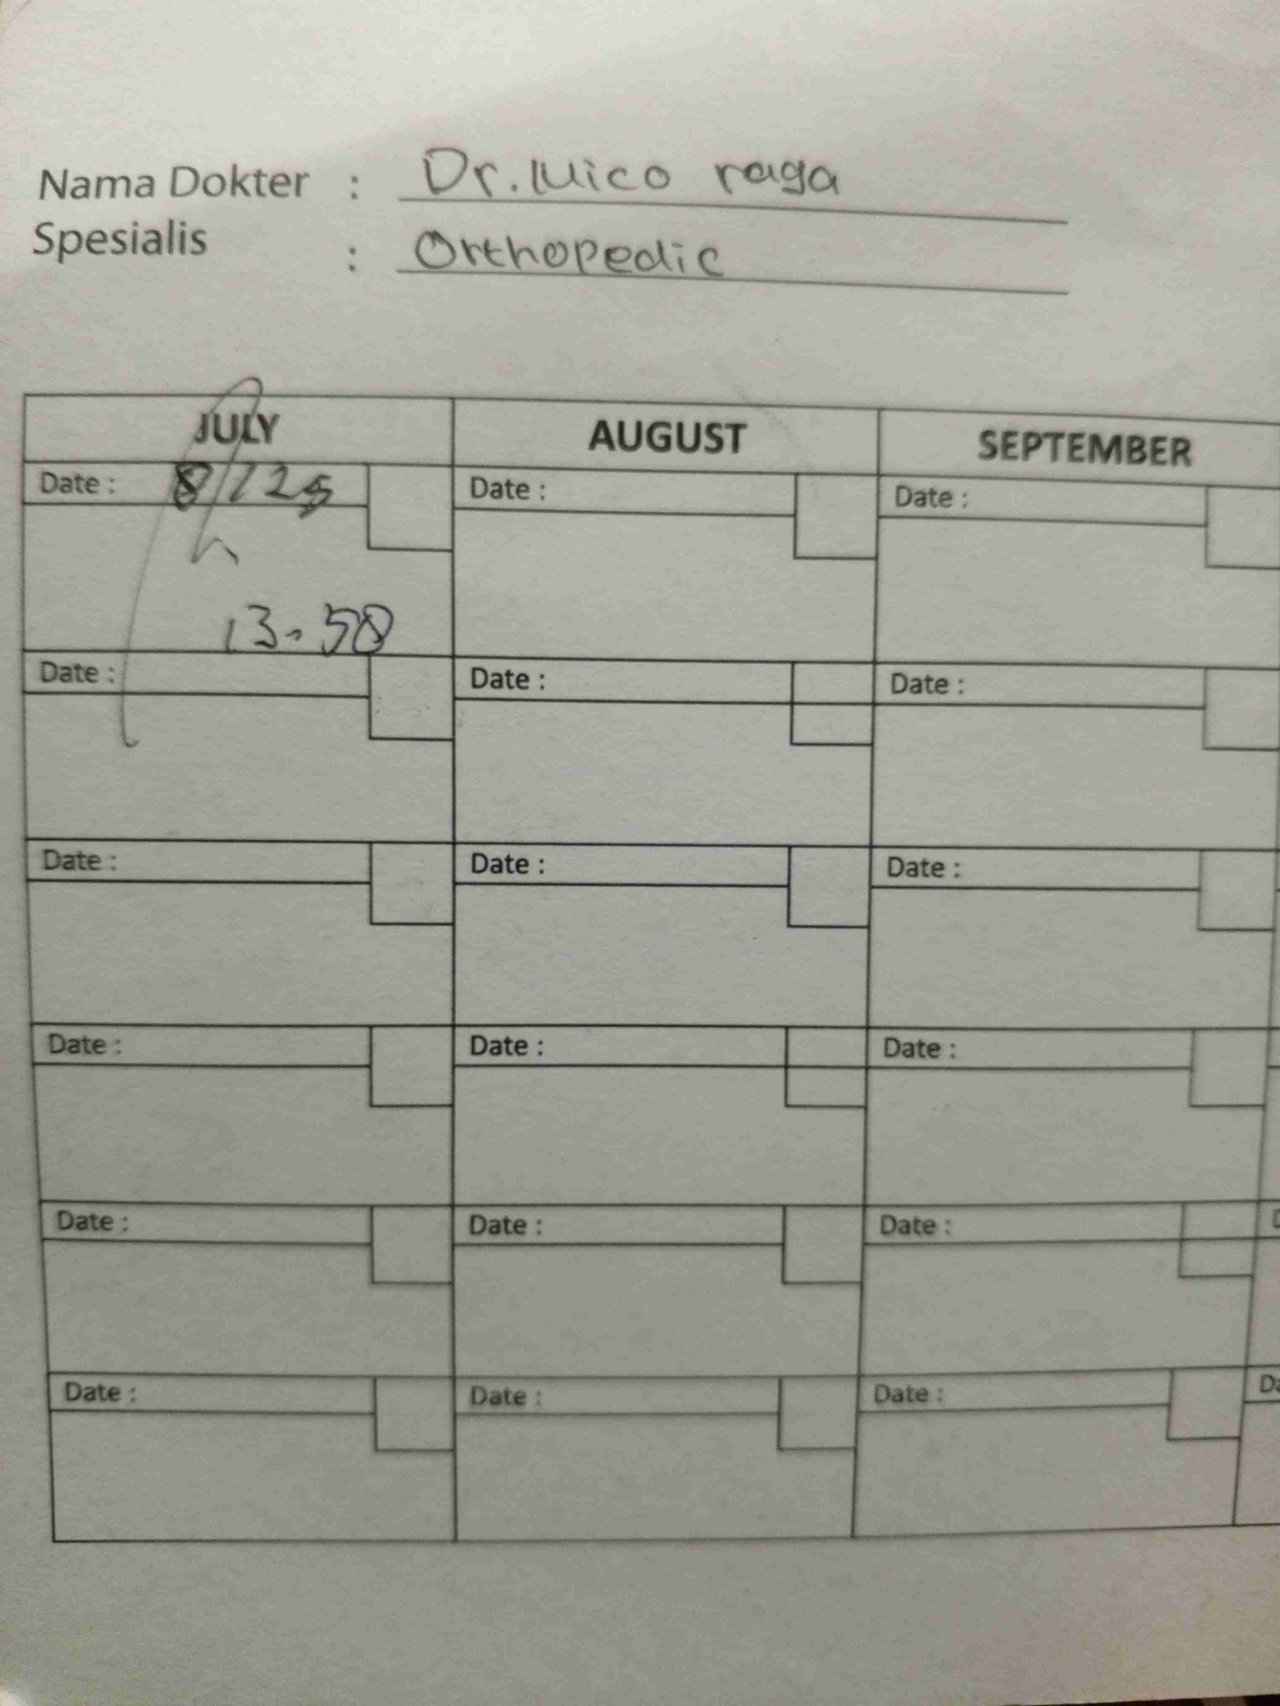 Nama Dokter : Dr. Mico raga
Spesialis : Orthopedic
JULY AUGUST SEPTEMBER
Date : Date : Date :
13.50
Date : Date : Date :
Date : Date : Date :
Date : Date : Date :
Date : Date : Date :
Date : Date : Date :